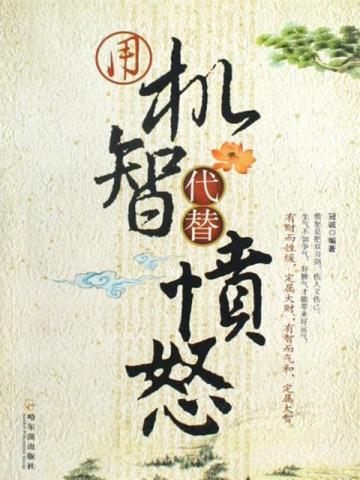 用
机智
代替
愤怒
冠诚 编著
愤怒是把双刃剑，伤人又伤己。
生气不如争气，好脾气才能带来好运气。
有财而性缓，定属大财；有智而气和，定属大智。
哈尔滨出版社